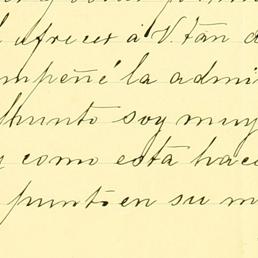 ofrecer á V. tan
empeñé la admi
punto soy muy
como esta hace
punto en su m